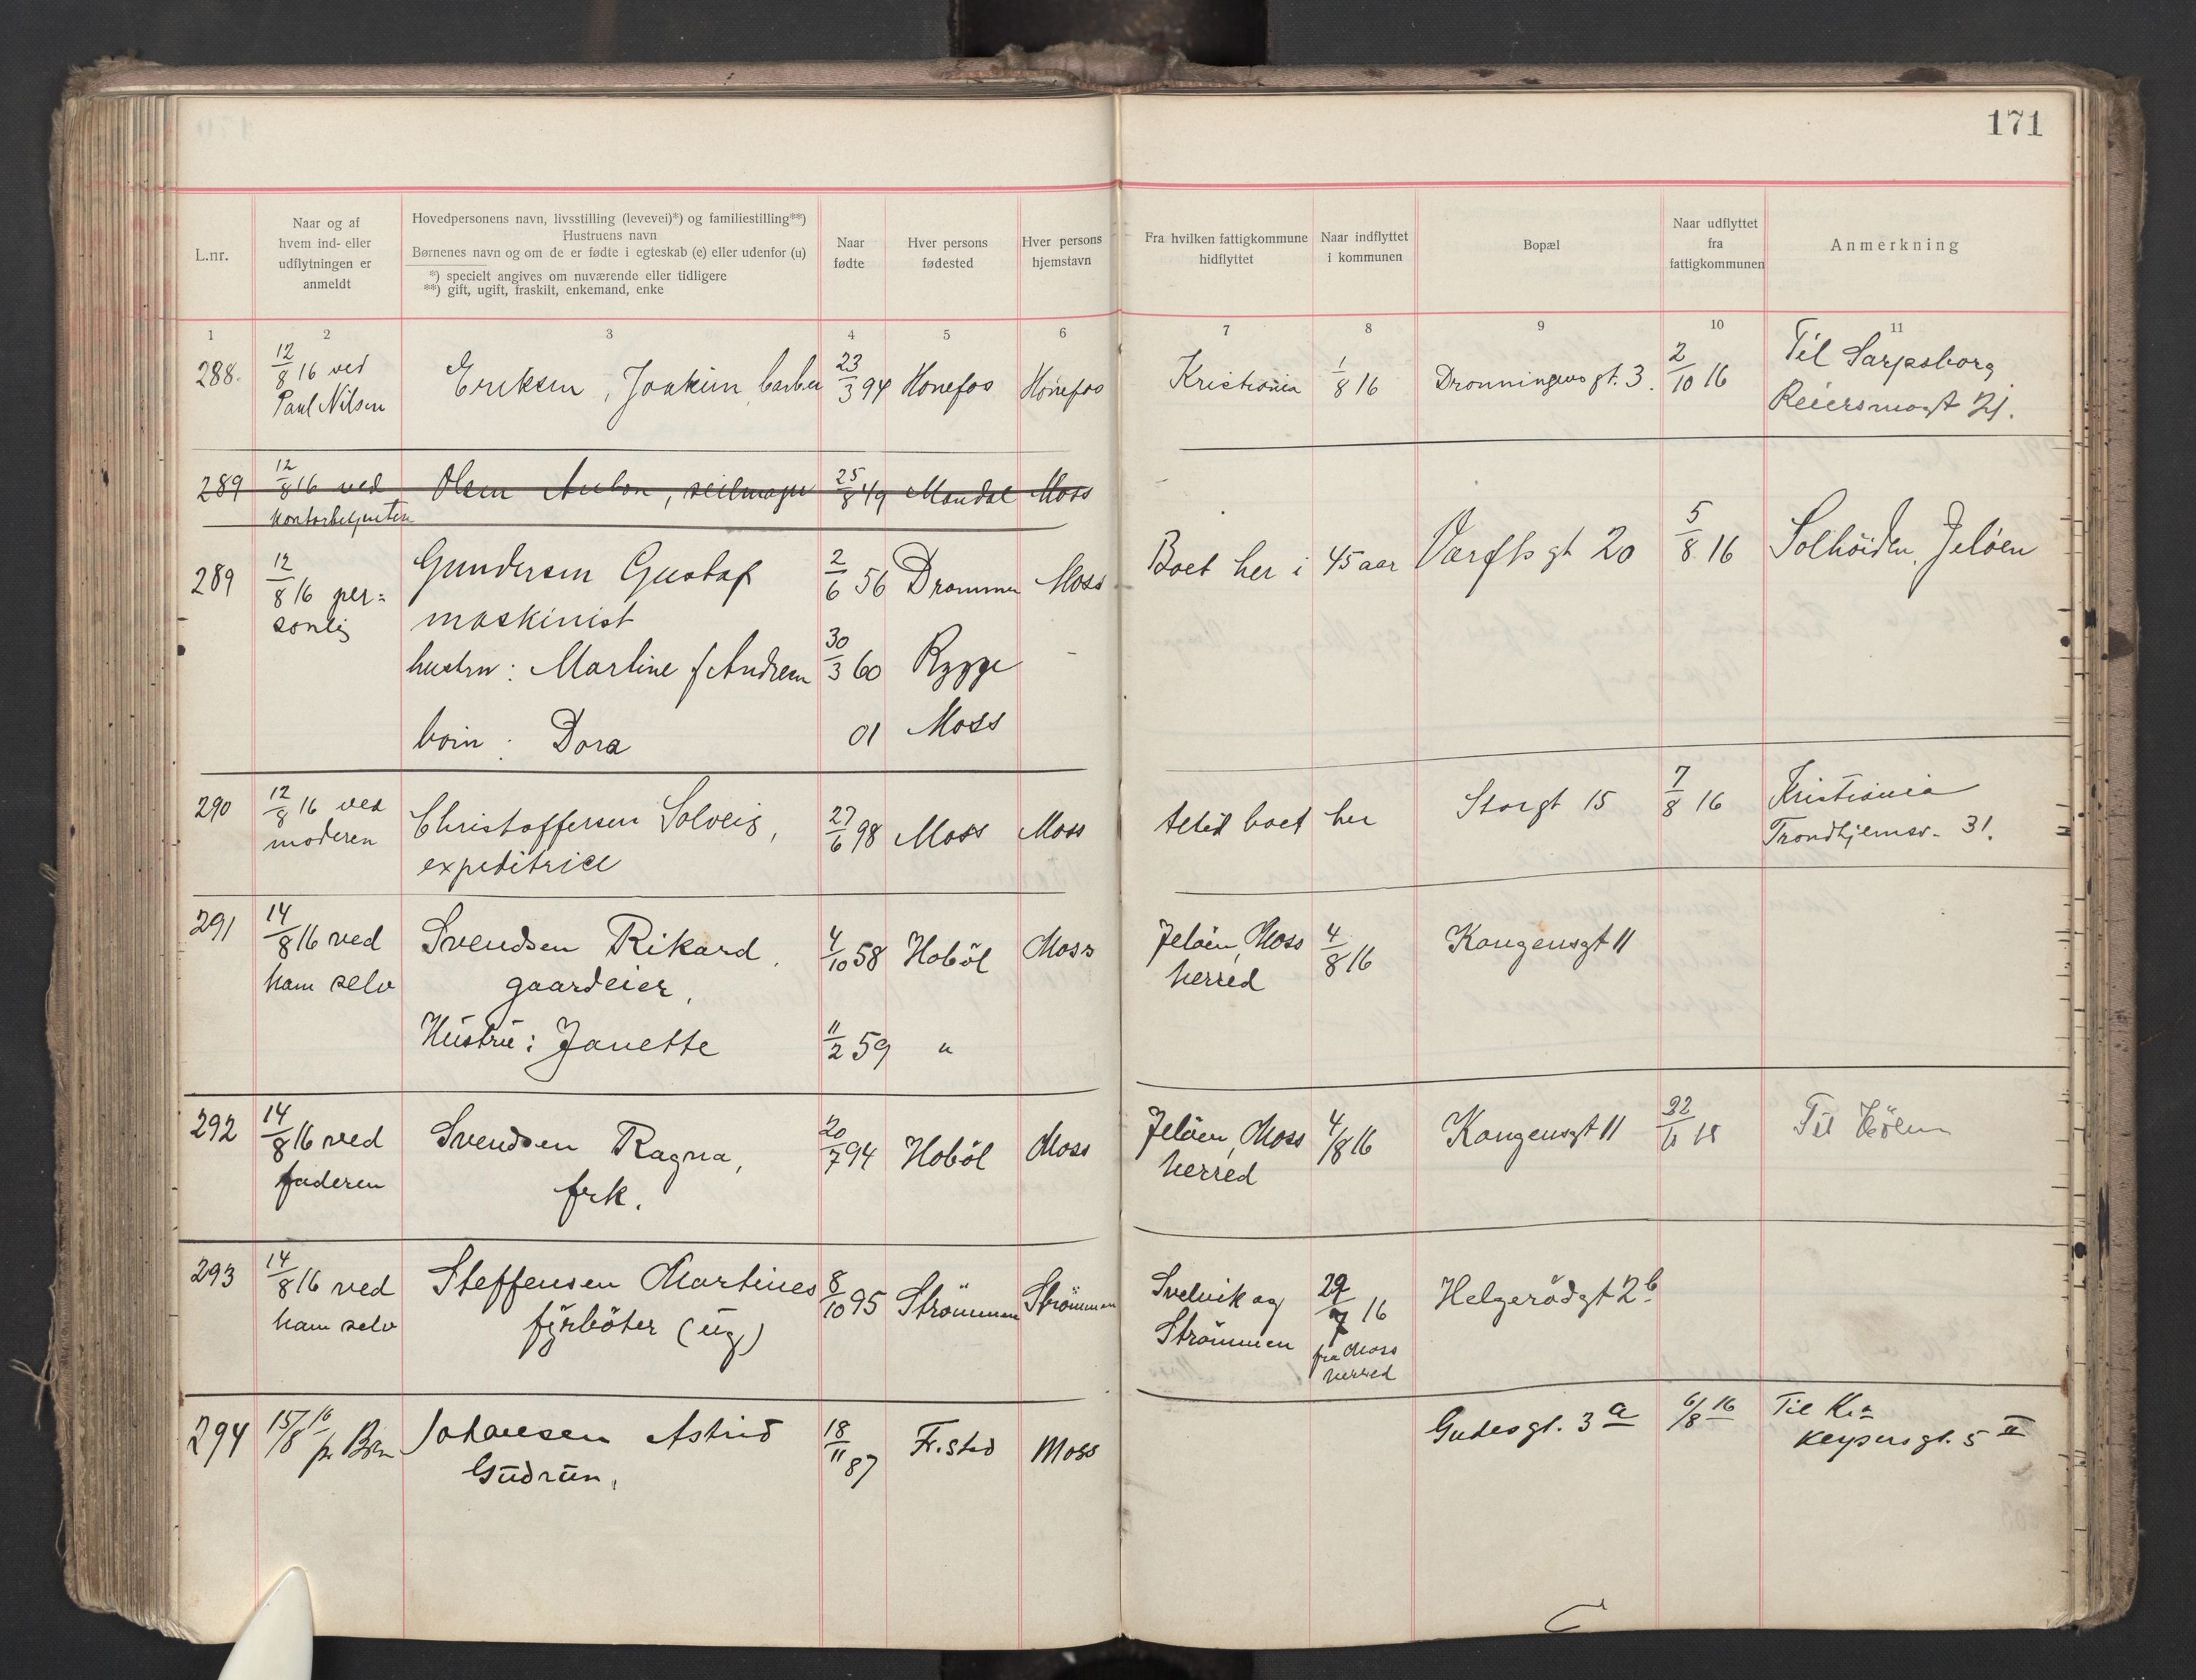 171
L.nr.
Naar og af
hvem ind- eller
udflytningen er
anmeldt
Hovedpersonens navn, livsstilling (levevei)*) og familiestilling**)
Hustruens navn
Børnenes navn og om de er fødte i egteskab (e) eller udenfor (u)
*) specielt angives om nuværende eller tidligere
**) gift, ugift, fraskilt, enkemand, enke
Naar
fødte
Hver persons
fødested
Hver persons
hjemstavn
Fra hvilken fattigkommune
hidflyttet
Naar indflyttet
i kommunen
Bopæl
Naar udflyttet
fra
fattigkommunen
Anmerkning
1 2 3 4 5 6 7 8 9 10 11
288. 12/8 16 ved Eriksen, Joakim, barber 23/3 94 Hönefos Hönefos Kristiania 1/8 16 Dronningens gt. 3. 2/10 16 Til Sarpsborg
Paul Nilsen Reiersmogt 21.
289 12/8 16 ved Olsen Anton, seilmager 25/8 49 Mandal Moss
kontorbetjenten
289 12/8 16 per= Gundersen Gustaf 2/6 56 Drammen Moss Boet her i 45 aar Varfts gt 20 5/8 16 Solhöiden, Jelöen
sonlig maskinist
hustru: Martine f Andresen 30/3 60 Rygge -
börn: Dora 01 Moss
290 12/8 16 ved Christoffersen Solveig, 27/6 98 Moss Moss Altid boet her Storgt 15 7/8 16 Kristiania
moderen expeditrice Trondhjemsv. 31.
291 14/8 16 ved Svendsen Rikard, 4/10 58 Hoböl Moss Jelöen, Moss 4/8 16 Kongensgt 11
ham selv gaardeier, herred
Hustru: Janette 11/2 59 "
292 14/8 16 ved Svendsen Ragna, 20/7 94 Hoböl Moss Jelöen, Moss 4/8 16 Kongensgt 11 22/11 18 Til
faderen frk. herred
293 14/8 16 ved Steffensen Martines 8/10 95 Strömmen Strömmen Svelvik og 29/7 16 Helgerödgt 2b.
ham selv fyrböter (ug) Strömmen fra Moss
herred
294 15/8 16 Johansen Astrid 18/11 87 Fr.stad Moss Gudesgt. 3 a 6/8 16 Til Kra
pr Gudrun, Keysersgt. 5 II